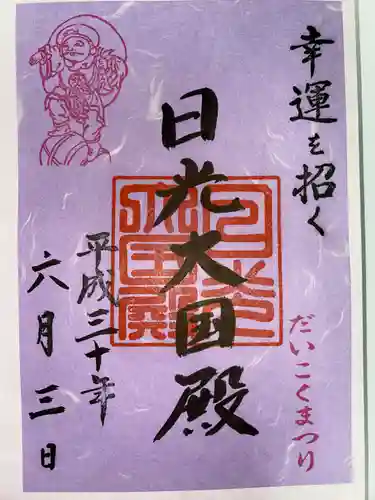 幸運を招く
だいこくまつり
日光大国殿
平成三十年
六月三日